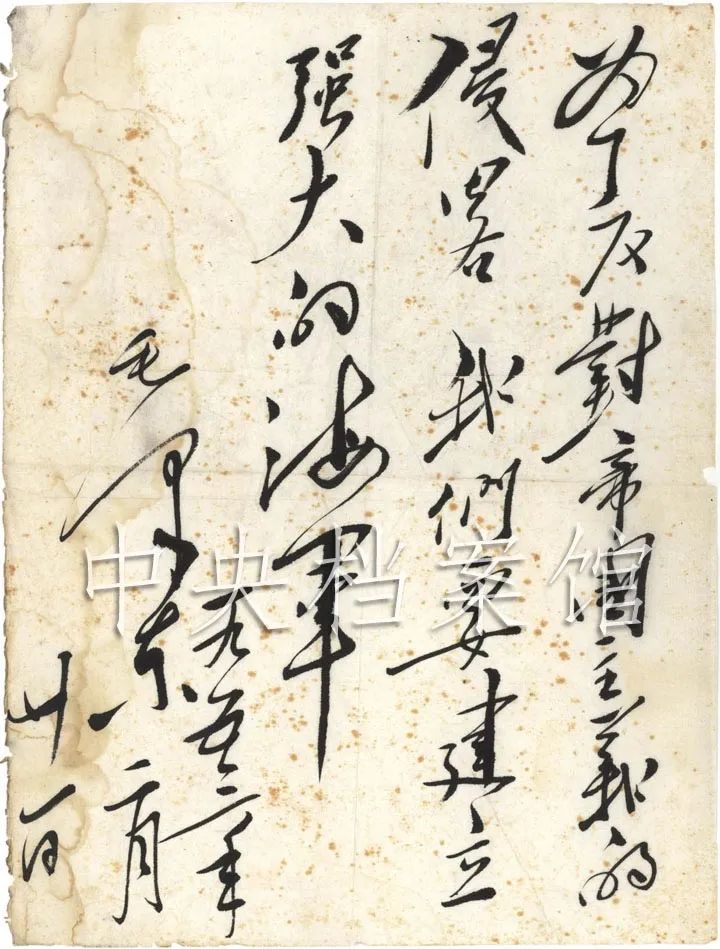 为了反對帝國主義的
侵畧 我們要建立
强大的海軍
毛澤东
一九五三年
二月
廿一日
中央档案馆